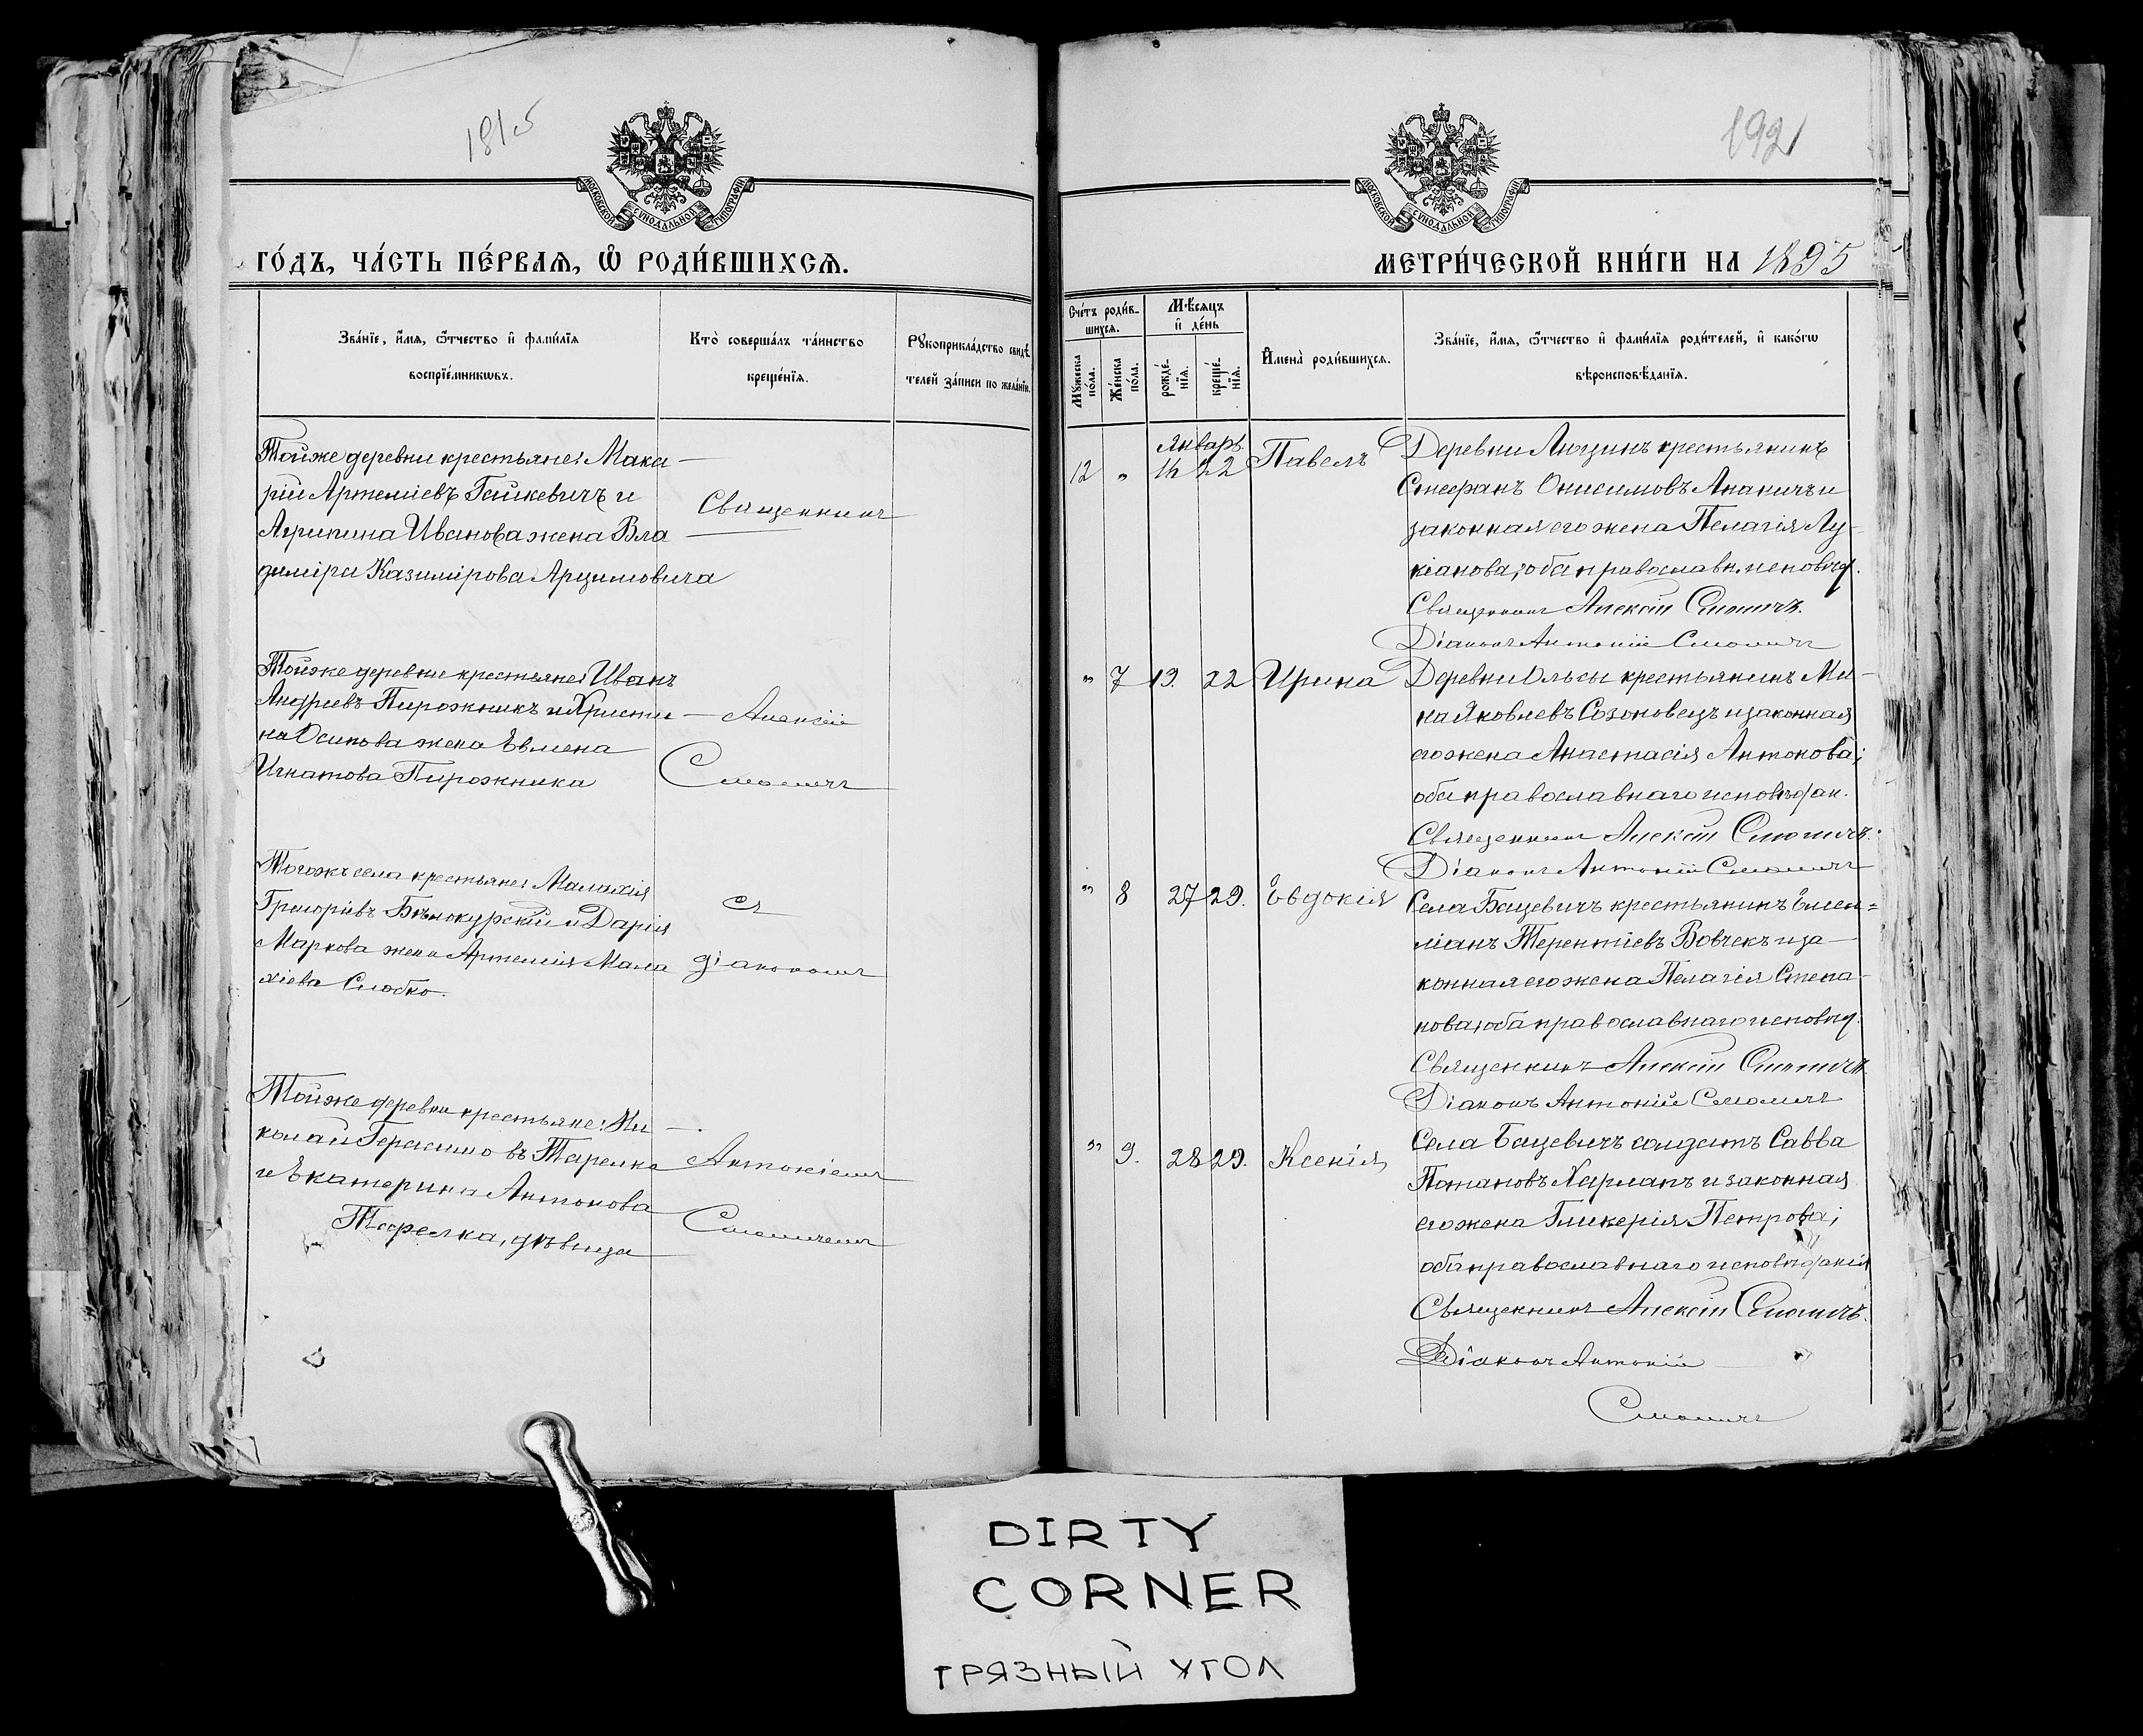 1815
МОСКОВСКОЙ СѴНОДАЛЬНОЙ ТИПОГРАФІИ
ГО́ДЪ, ЧА́СТЬ ПЕ́РВАЯ, Ѿ РОДИ́ВШИХСЯ.
Зва́нїе, и҆́мя, ѻ҆́тчество и҆ фами́лїя
воспрїе́мникѡвъ.
Кто̀ соверша́лъ та́инство
креще́нїя.
Рꙋкоприкла́дство свидѣ́-
телей за́писи по жела́нїю.
Тойже деревни крестьяне: Мака
рій Артеміевъ Гайкевичъ и
Агрипина Иванова жена Вла
диміра Казимірова Арцимовича
Священникъ
Тойже деревни крестьяне: Иванъ
Андреевъ Пирожникъ и Христи
на Осипова жена Евмена
Игнатова Пирожника
Алексій
Смоличъ
Тогожъ села крестьяне: Малахія
Григоріевъ Бѣлокурскій и Дарія
Маркова жена Артемія Мала
хіева Слабко.
съ
діакономъ
Тойже деревни крестьяне: Ни
колай Герасимовъ Тарелка
и Екатерина Антонова
Тарелка, дѣвица
Антоніемъ
Смоличемъ
192
МОСКОВСКОЙ СѴНОДАЛЬНОЙ ТИПОГРАФІИ
МЕТРИ́ЧЕСКОЙ КНИ́ГИ НА 1895
Сче́тъ роди́в-
шихся.
Мꙋ́жеска по́ла.
Же́нска по́ла.
Мѣ́сяцъ
и҆ де́нь
рожде́-
нїя.
креще́-
нїя.
И҆мена̀ роди́вшихся.
Зва́нїе, и҆́мя, ѻ҆́тчество и҆ фами́лїя роди́телей, и҆ како́гѡ
вѣроисповѣ́данїя.
Январь
12 " 14 22 Павелъ
Деревни Люзинъ крестьянинъ
Стефанъ Онисимовъ Ананичъ и
законная его жена Пелагія Лу-
кіанова; оба православн. исповѣд.
Священникъ Алексій Смоличъ.
Діаконъ Антоній Смоличъ
" 7 19. 22 Ирина
Деревни Ольсы крестьянинъ Ми-
на Яковлевъ Созоновецъ и законная
его жена Анастасія Антонова;
оба православнаго исповѣдан.
Священникъ Алексій Смоличъ.
Діаконъ Антоній Смоличъ
" 8 27 29. Евдокія
Села Бацевичъ крестьянинъ Емел=
ліанъ Терентіевъ Вовчекъ и за-
конная его жена Пелагія Степа-
нова; оба православнаго исповѣд.
Священникъ Алексій Смоличъ
Діаконъ Антоній Смоличъ
" 9. 28 29. Ксенія
Села Бацевичъ солдатъ Савва
Потаповъ Харланъ и законная
его жена Гликерія Петрова;
оба православнаго исповѣданія
Священникъ Алексій Смоличъ.
Діаконъ Антоній
Смоличъ
DIRTY
CORNER
ГРЯЗНЫЙ УГОЛ